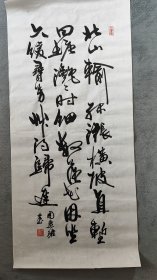 北山輸綠漲橫陂直塹
回塘灧灧時細數落花因坐
久緩尋芳草得歸遲